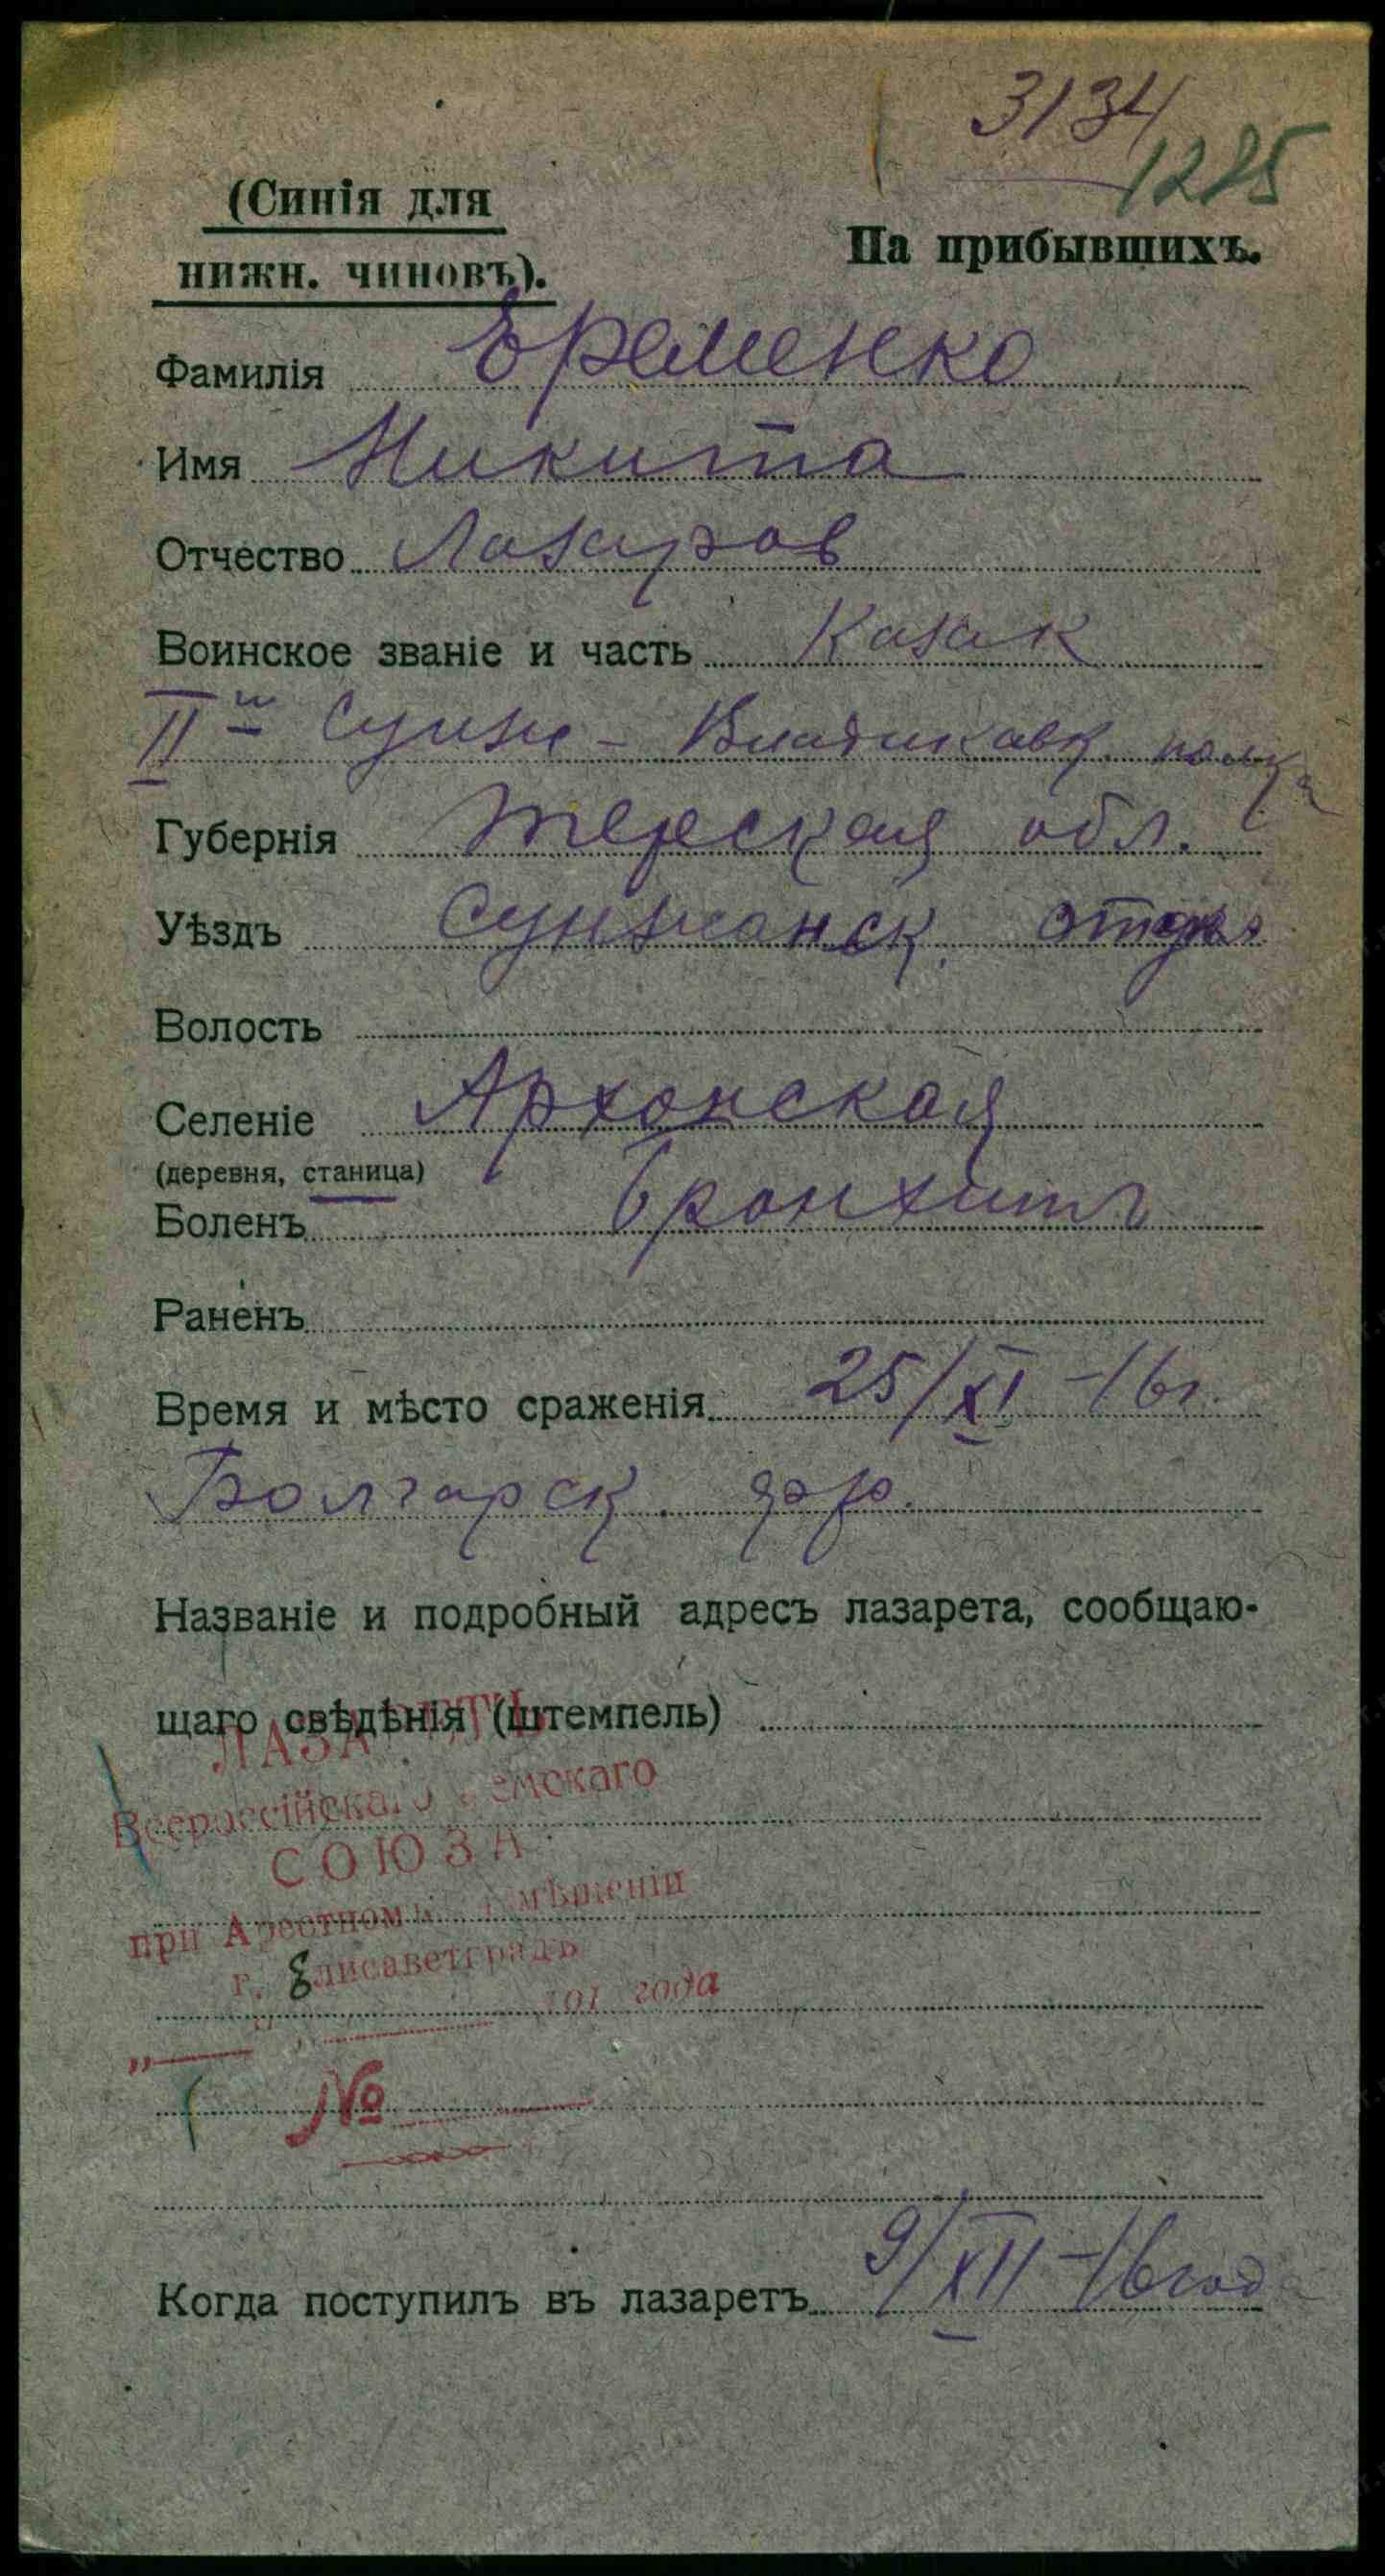 3134
1285
(Синія для
нижн. чиновъ).
На прибывшихъ.
Фамилія Еременко
Имя Никита
Отчество Лазаров
Воинское званіе и часть Казак
IIй Сунж - Владикавк. полка
Губернія Терская обл.
Уѣздъ Сунжанск.
Волость
Селеніе Архонская
(деревня, станица)
Боленъ бронхитъ
Раненъ
Время и мѣсто сраженія 25/XI - 16г.
Болгарск. фр.
Названіе и подробный адресъ лазарета, сообщаю-
щаго свѣдѣнія (штемпель)
ЛАЗАРЕТЪ
Всероссійскаго Земскаго
СОЮЗА
при Арестномъ помѣщеніи
г. Елисаветградъ
„ " 191 года
№
Когда поступилъ въ лазаретъ 9/XII - 16 год